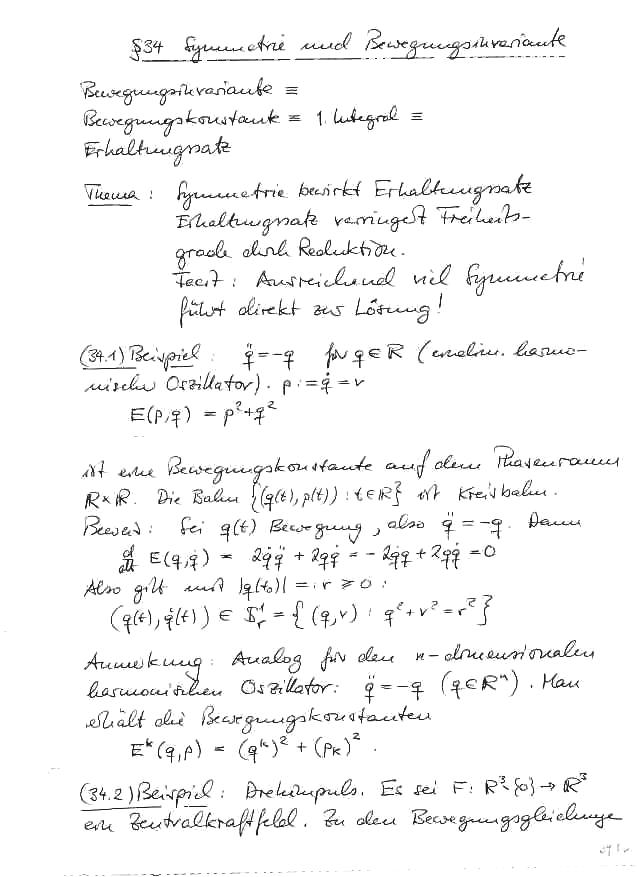 §34 Symmetrie und Bewegungsinvariante
Bewegungsinvariante ≡
Bewegungskonstante ≡ 1. Integral ≡
Erhaltungssatz
Thema : Symmetrie bewirkt Erhaltungssatz
Erhaltungssatz verringert Freiheits-
grade durch Reduktion.
Fazit : Ausreichend viel Symmetrie
führt direkt zur Lösung!
(34.1) Beispiel : q̈ = -q für q ∈ ℝ (eindim. harmo-
nischer Oszillator). p := q̇ = v
E(p,q) = p² + q²
ist eine Bewegungskonstante auf dem Phasenraum
ℝ×ℝ. Die Bahn {(q(t), p(t)) : t ∈ ℝ} ist Kreisbahn.
Beweis : Sei q(t) Bewegung, also q̈ = -q. Dann
d/dt E(q,q̇) = 2q̇q̈ + 2qq̇ = -2q̇q + 2qq̇ = 0
Also gilt mit |q(t₀)| =: r ⩾ 0 :
(q(t), q̇(t)) ∈ 𝕊¹ᵣ = {(q,v) : q² + v² = r²}
Anmerkung : Analog für den n-dimensionalen
harmonischen Oszillator : q̈ = -q (q ∈ ℝⁿ). Man
erhält die Bewegungskonstanten
Eᵏ(q,p) = (qᵏ)² + (pₖ)².
(34.2) Beispiel : Drehimpuls. Es sei F : ℝ³\{0} → ℝ³
ein Zentralkraftfeld. Zu den Bewegungsgleichunge